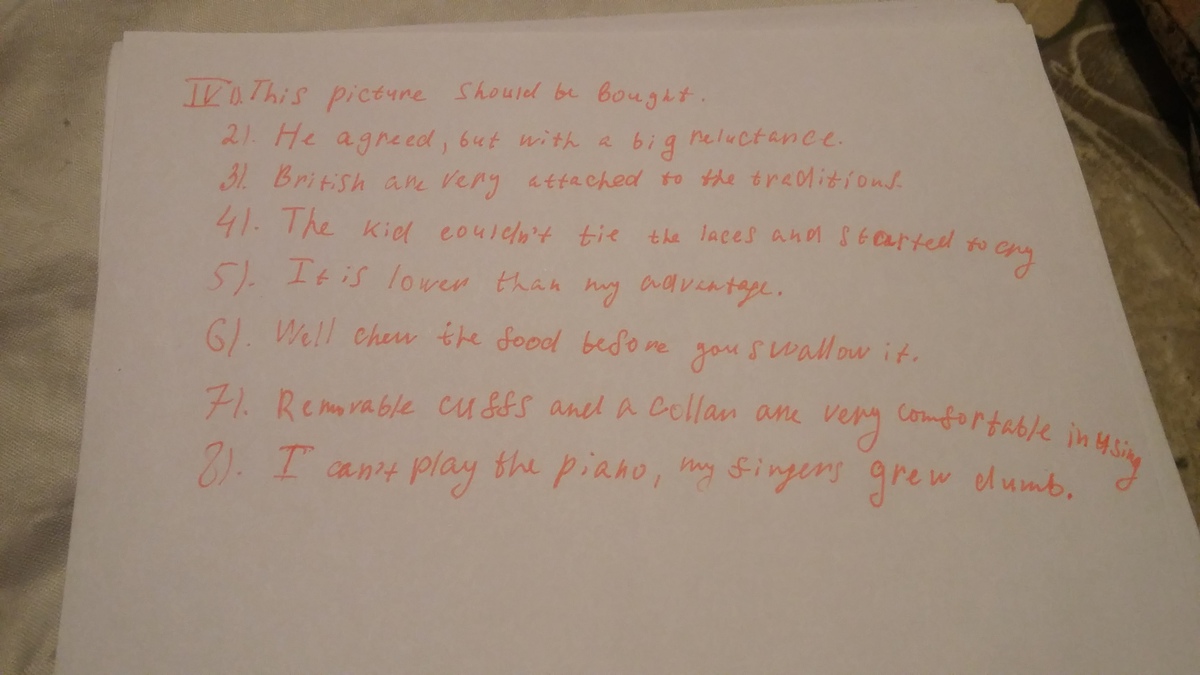 IV 1). This picture should be Bought.
2). He agreed, but with a big reluctance.
3). British are very attached to the traditions.
4). The kid couldn't tie the laces and started to cry
5). It is lower than my advantage.
6). Well chew the food before you swallow it.
7). Removable cuffs and a collar are very comfortable in using
8). I can't play the piano, my fingers grew dumb.